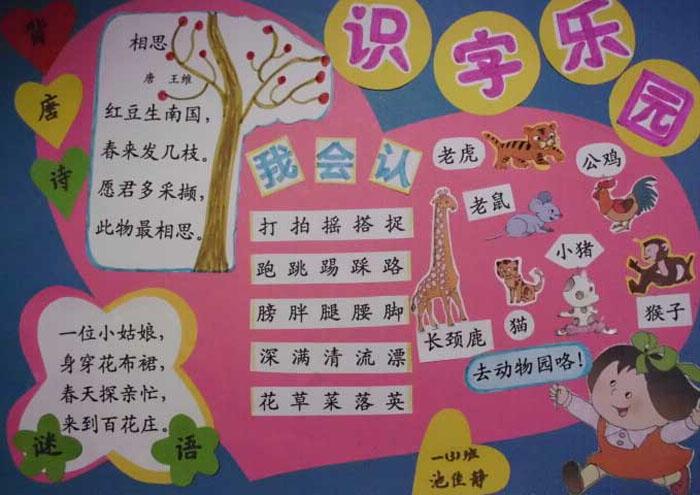 识字乐园
背唐诗
相思
唐 王维
红豆生南国，
春来发几枝。
愿君多采撷，
此物最相思。
我会认
打 拍 摇 搭 捉
跑 跳 踢 踩 路
膀 胖 腿 腰 脚
深 满 清 流 漂
花 草 菜 落 英
老虎
公鸡
老鼠
小猪
猫
猴子
长颈鹿
去动物园咯！
一位小姑娘，
身穿花布裙，
春天探亲忙，
来到百花庄。
谜语
一(3)班
池佳静